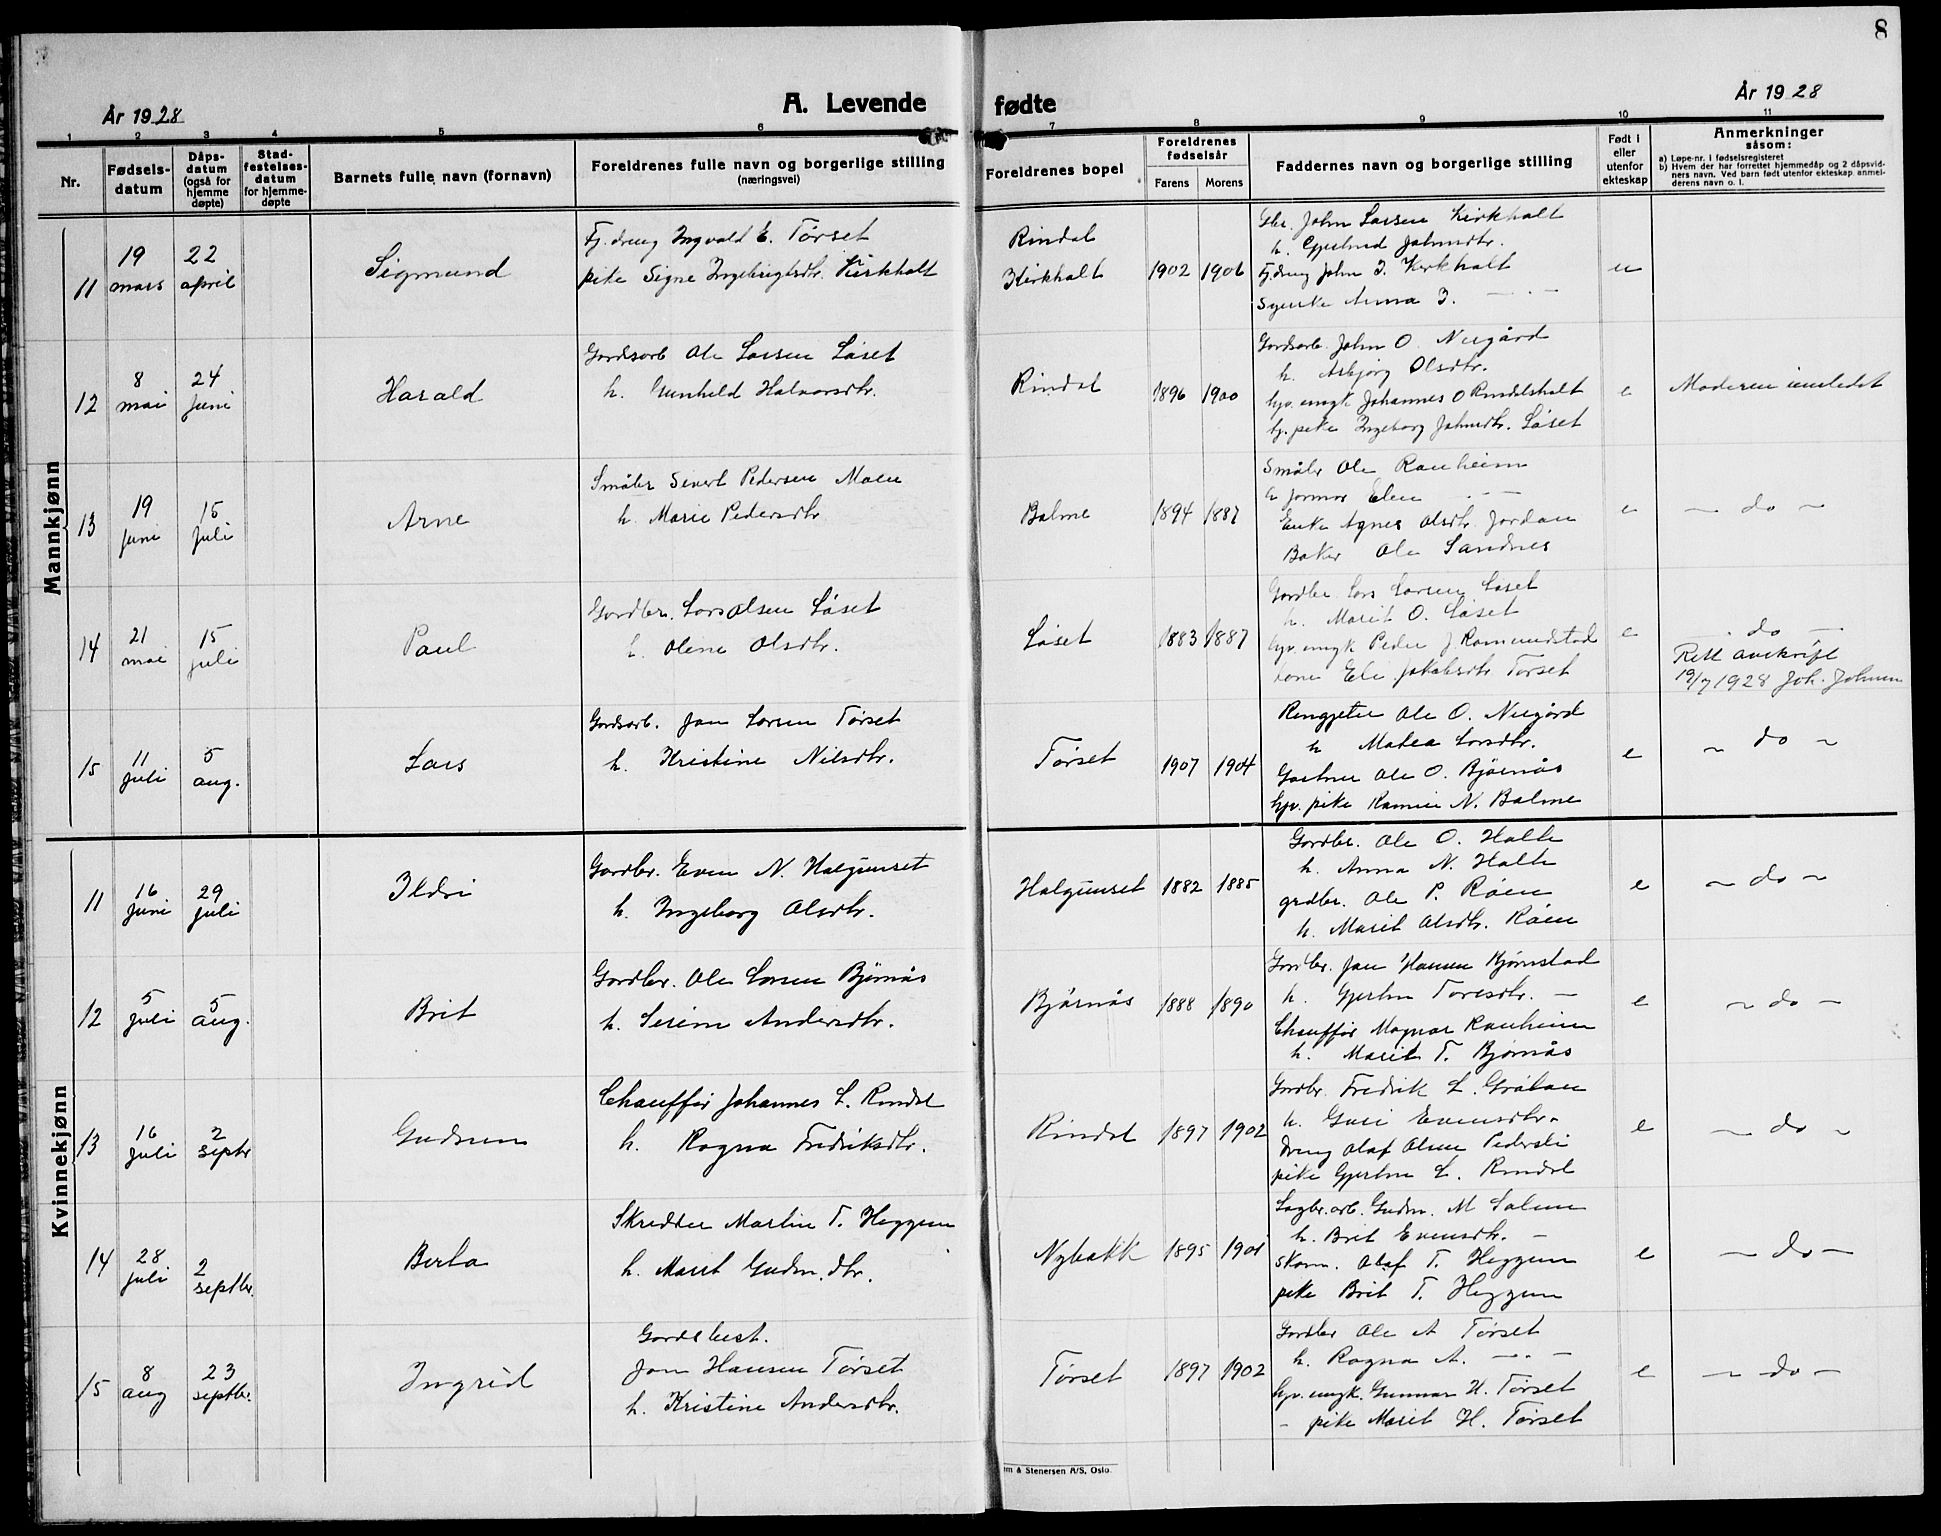 8
År 1928
A. Levende fødte
År 1928
1 2 3 4 5 6 7 8 9 10 11
Nr.
Fødsels-datum
Dåps-datum (også for hjemme døpte)
Stad-festelses-datum for hjemme-døpte
Barnets fulle navn (fornavn)
Foreldrenes fulle navn og borgerlige stilling
(næringsvei)
Foreldrenes bopel
Foreldrenes fødselsår
Farens Morens
Faddernes navn og borgerlige stilling
Født i eller utenfor ekteskap
Anmerkninger
såsom:
a) Løpe-nr. i fødselsregisteret
b) Hvem der har forrettet hjemmedåp og 2 dåpsvid-
ners navn. Ved barn født utenfor ekteskap anmel-
derens navn o. l.
Mannkjønn
11
19 mars
22 april
Sigmund
Fj. dreng Ingvald E. Tørset
pike Signe Ingebrigtsdtr. Kirkholt
Rindal
Kirkholt
1902 1906
Gbr. John Larsen Kirkholt
h. Gjertrud Johnsdtr.
Fj. dreng John J. Kirkholt
Syerske Anna J. — " —
u
12
8 mai
24 juni
Harald
Gardsarb Ole Larsen Løset
h. Gunhild Halvorsdtr.
Rindal
1896 1900
Gardsarb. John O. Nergård
h. Asbjørg Olsdtr.
hjv. ungk Johannes O Rindalsholt
hj. pike Ingeborg Johnsdtr. Løset
e
Moderen innledet
13
19 juni
15 juli
Arne
Småbr Sivert Pedersen Moen
h. Marie Pedersdtr
Bolme
1894 1887
Småbr Ole Ranheim
h Jormor Elen — " —
Enke Agnes Olsdtr. Jordan
Baker Ole Sandnes
e
— do —
14
21 mai
15 juli
Paul
Gardbr. Lars Olsen Løset
h. Olene Olsdtr.
Løset
1883 1887
Gardbr Lars Larsen Løset
h. Marit O. Løset
hjv. ungk Peder J. Romundstad
kone Eli Jakobsdtr Tørset
e
— do —
Rett avskrift
19/7 1928 Joh. Johnsen
15
11 juli
5 aug.
Lars
Gardsarb. Jon Larsen Tørset
h. Kristine Nilsdtr.
Tørset
1907 1904
Ole O. Nergård
h Matea Larsdtr.
Gartner Ole O. Bjørnås
hjv. pike N. Bolme
e
— do —
Kvinnekjønn
11
16 juni
29 juli
Ildri
Gardbr. Even N. Halgunset
h. Ingeborg Olsdtr.
Halgunset
1882 1885
Gardbr. Ole O. Holte
h. Anna N. Holte
grdbr. Ole P. Røen
h. Marit Olsdtr. Røen
e
— do —
12
5 juli
5 aug.
Brit
Gardbr. Ole Larsen Bjørnås
h. Serine Andersdtr.
Bjørnås
1888 1890
Gardbr. Jon Hansen Bjørnstad
h. Gjertru Toresdtr. —
Chauffør Magnar Ranheim
h. Marit T. Bjørnås
e
— do —
13
16 juli
2 septbr
Gudrun
Chauffør Johannes L. Rindal
h. Ragna Fredriksdtr.
Rindal
1897 1902
Gardbr Fredrik L. Gråhaug
h. Guri Evensdtr.
Dreng Olaf Olsen Pedersli
pike Gjertru L. Rindal
e
— do —
14
28 juli
2 septbr.
Berta
Skredder Martin T. Heggem
h. Marit Gudm.dtr.
Nybakk
1895 1901
Sagbr.arb. Gudm. M Solem
h. Brit Evensdtr. —
Skom. Olaf T. Heggem
pike Brit T. Heggem
e
— do —
15
8 aug
23 septbr.
Ingrid
Gardsbest.
Jon Hansen Tørset
h. Kristine Andersdtr.
Tørset
1897 1902
Gardbr Ole A Tørset
h. Ragna A. — " —
hjv. ungk. Gunnar H. Tørset
— pike Marit H. Tørset
e
— do —
& Stenersen A/S, Oslo.